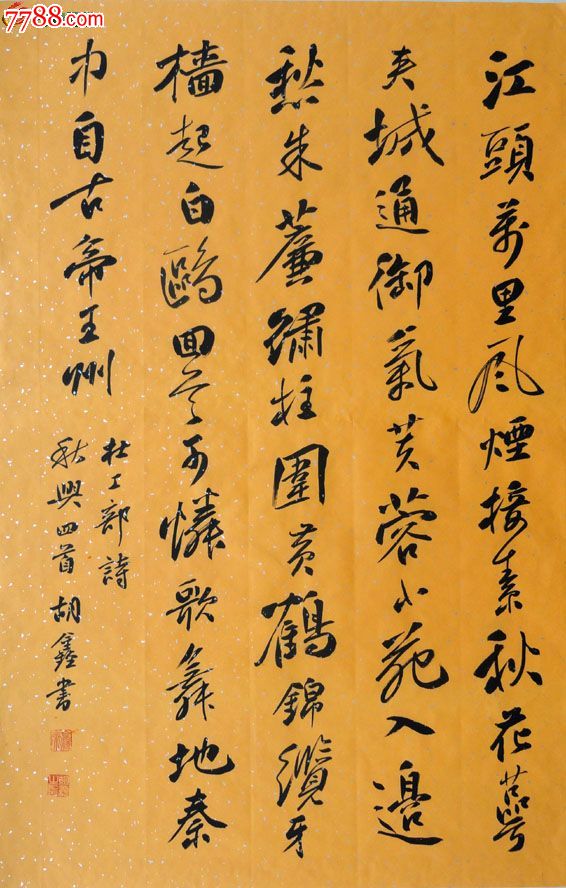 7788.com
江頭萬里風煙接素秋花萼
夾城通御氣芙蓉小苑入邊
愁朱簾繡柱圍黃鶴錦纜牙
檣起白鷗回首可憐歌舞地秦
中自古帝王州
杜工部詩
秋興四首胡鑫書